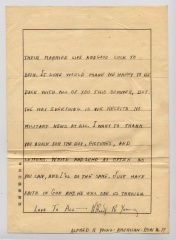 THEIR MARRIED LIFE AND GOOD LUCK TO
BOTH. IT SURE WOULD MAKE ME HAPPY TO BE
BACK WITH ALL OF YOU THIS SUMMER, BUT
THE WAY EVERYTHING IS WE
MILITARY NEWS AT ALL. I WANT TO THANK
YOU AGAIN FOR THE BOX, PICTURES, AND
LETTERS. WRITE AND SEND AS OFTEN AS
YOU CAN, AND I'LL DO THE SAME. JUST HAVE
FAITH IN GOD AND HE WILL SEE US THROUGH
LOVE TO ALL
Young
ALFRED R YOUNG AMERICAN